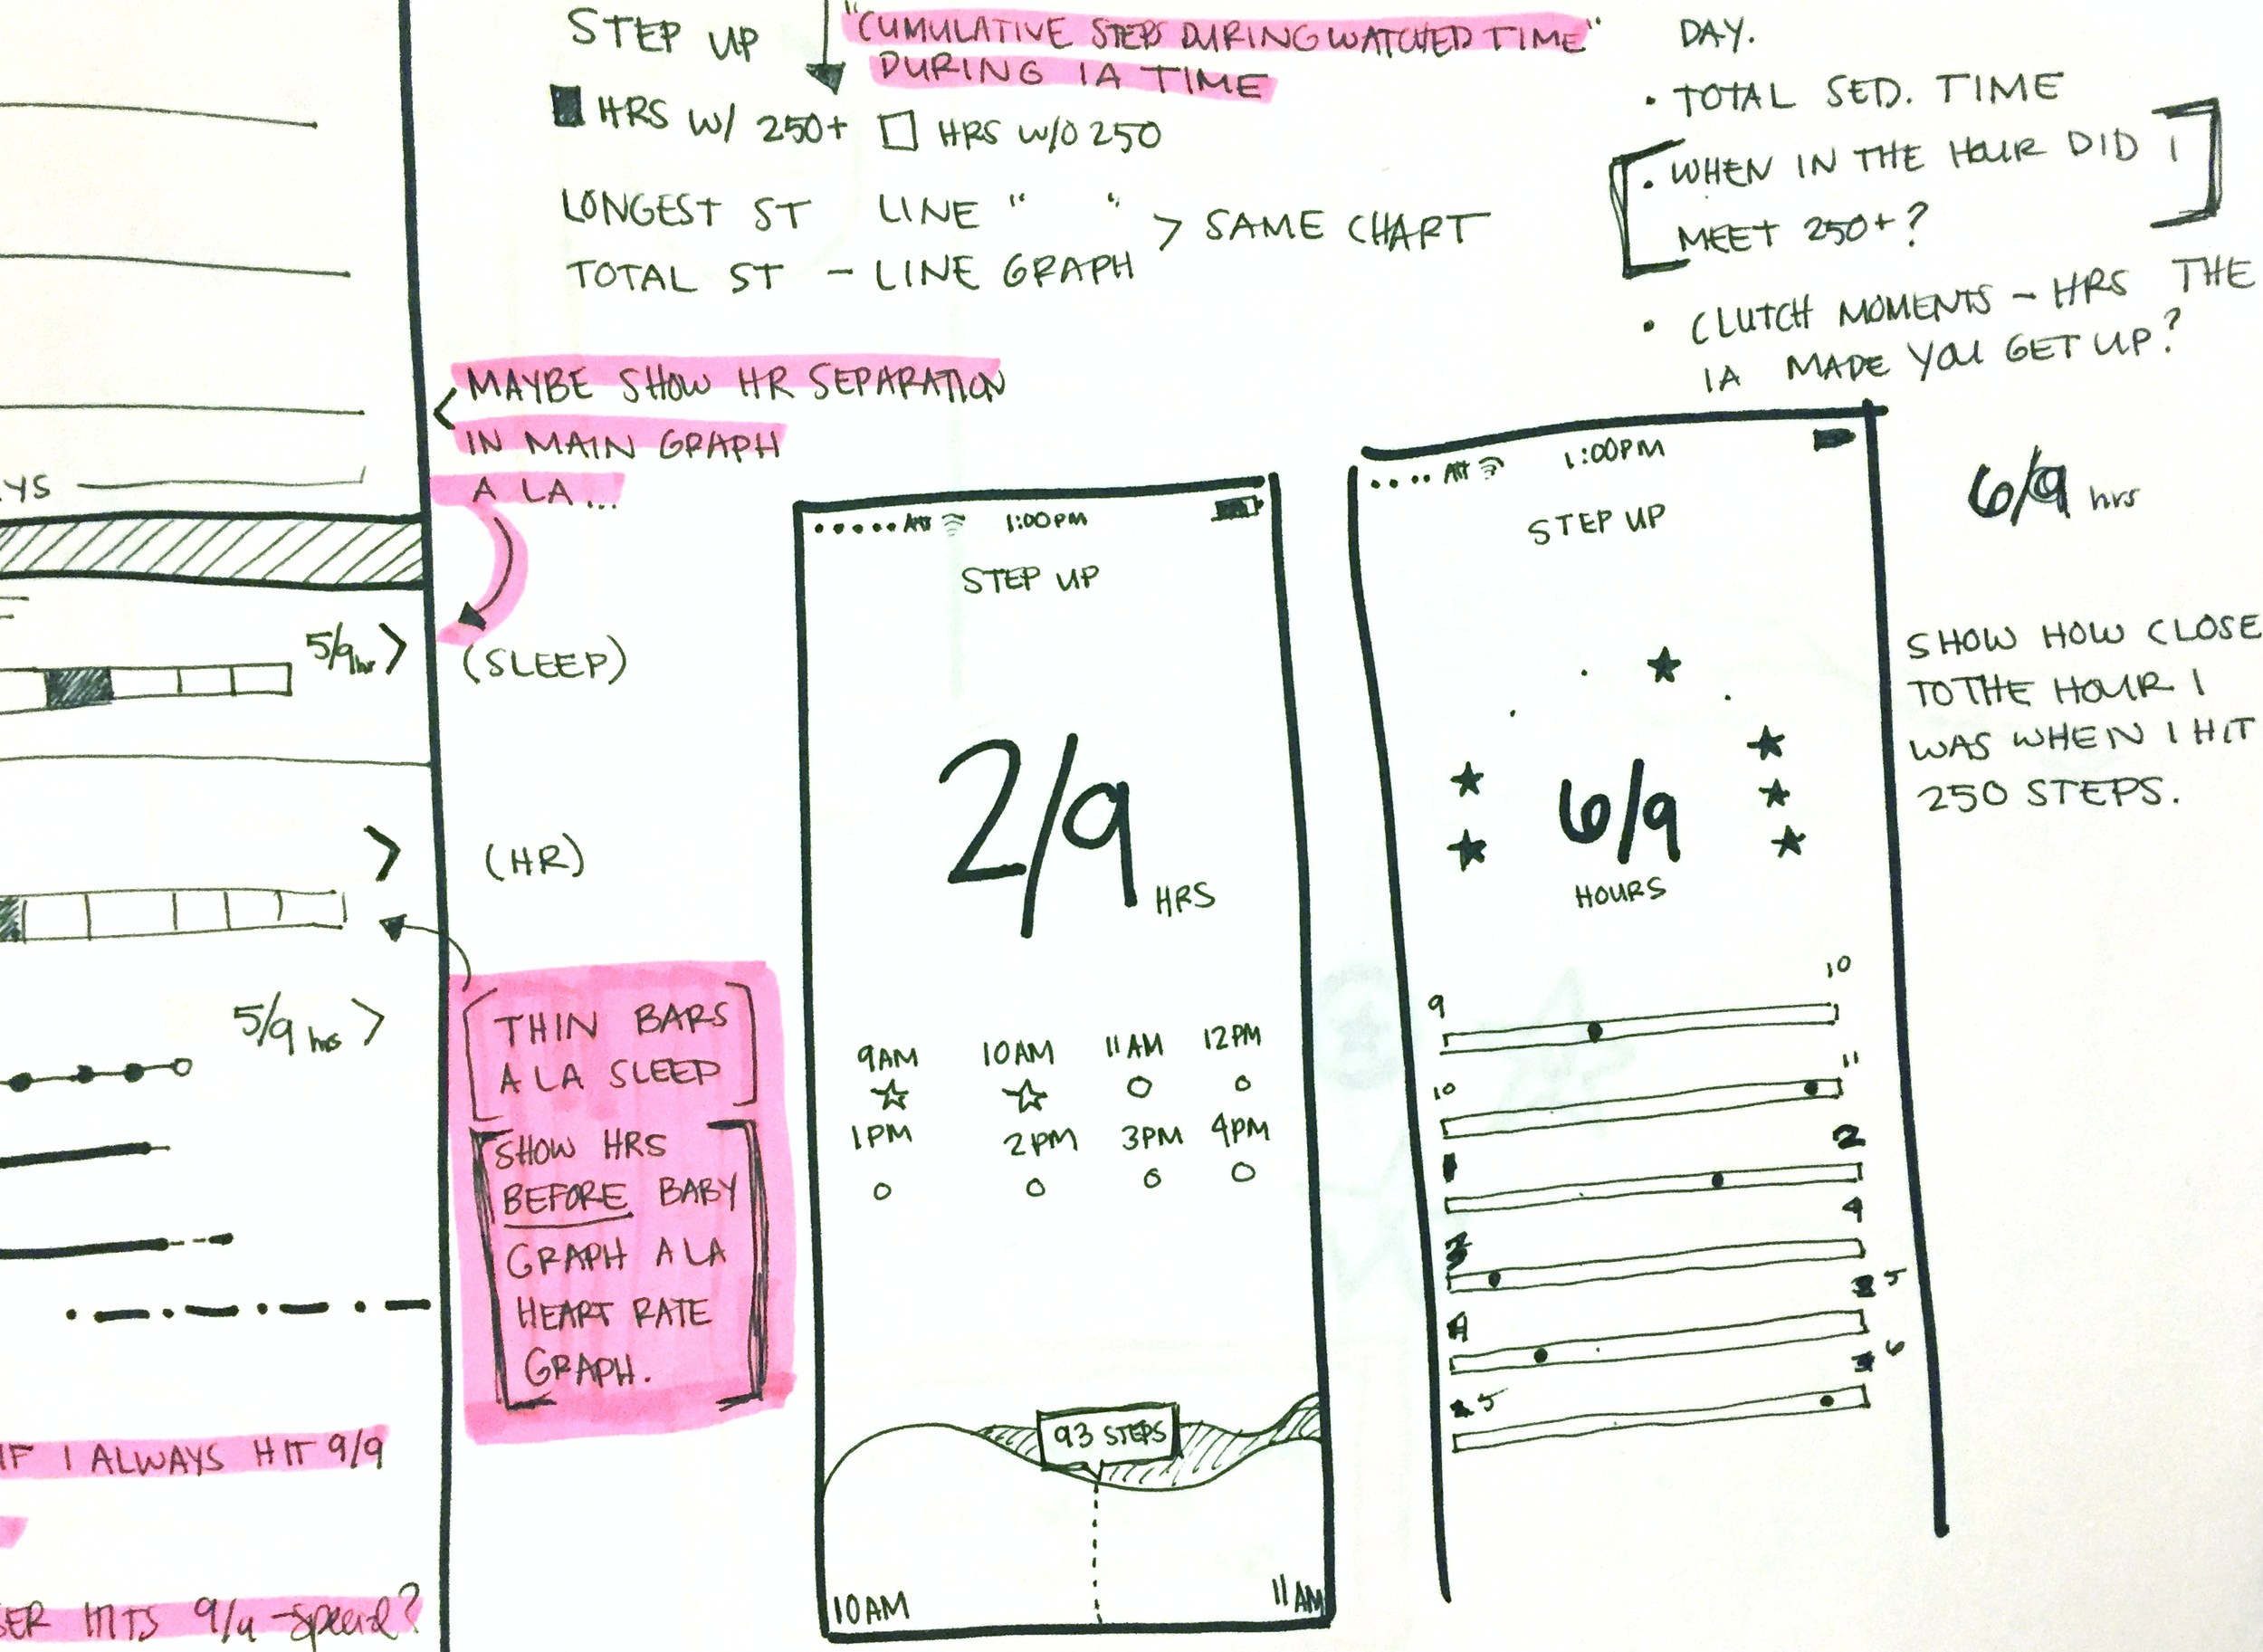 STEP UP
"CUMULATIVE STEPS DURING WATCHED TIME"
DURING IA TIME
HRS W/ 250+ HRS W/O 250
LONGEST ST LINE " "
TOTAL ST - LINE GRAPH
> SAME CHART
DAY.
• TOTAL SED. TIME
• WHEN IN THE HOUR DID I
MEET 250+?
• CLUTCH MOMENTS - HRS THE
IA MADE YOU GET UP?
< MAYBE SHOW HR SEPARATION
IN MAIN GRAPH
A LA...
YS
5/9 hr >
(SLEEP)
>
(HR)
5/9 hrs >
[THIN BARS
A LA SLEEP]
[SHOW HRS
BEFORE BABY
GRAPH A LA
HEART RATE
GRAPH.]
IF I ALWAYS HIT 9/9
SER HITS 9/9 - special?
ATT 1:00PM
STEP UP
2/9
HRS
9AM 10AM 11AM 12PM
1PM 2PM 3PM 4PM
93 STEPS
10AM 11AM
ATT 1:00PM
STEP UP
6/9
HOURS
9 10
10 11
1 2
3 4
4 5
5 6
6/9 hrs
SHOW HOW CLOSE
TO THE HOUR I
WAS WHEN I HIT
250 STEPS.